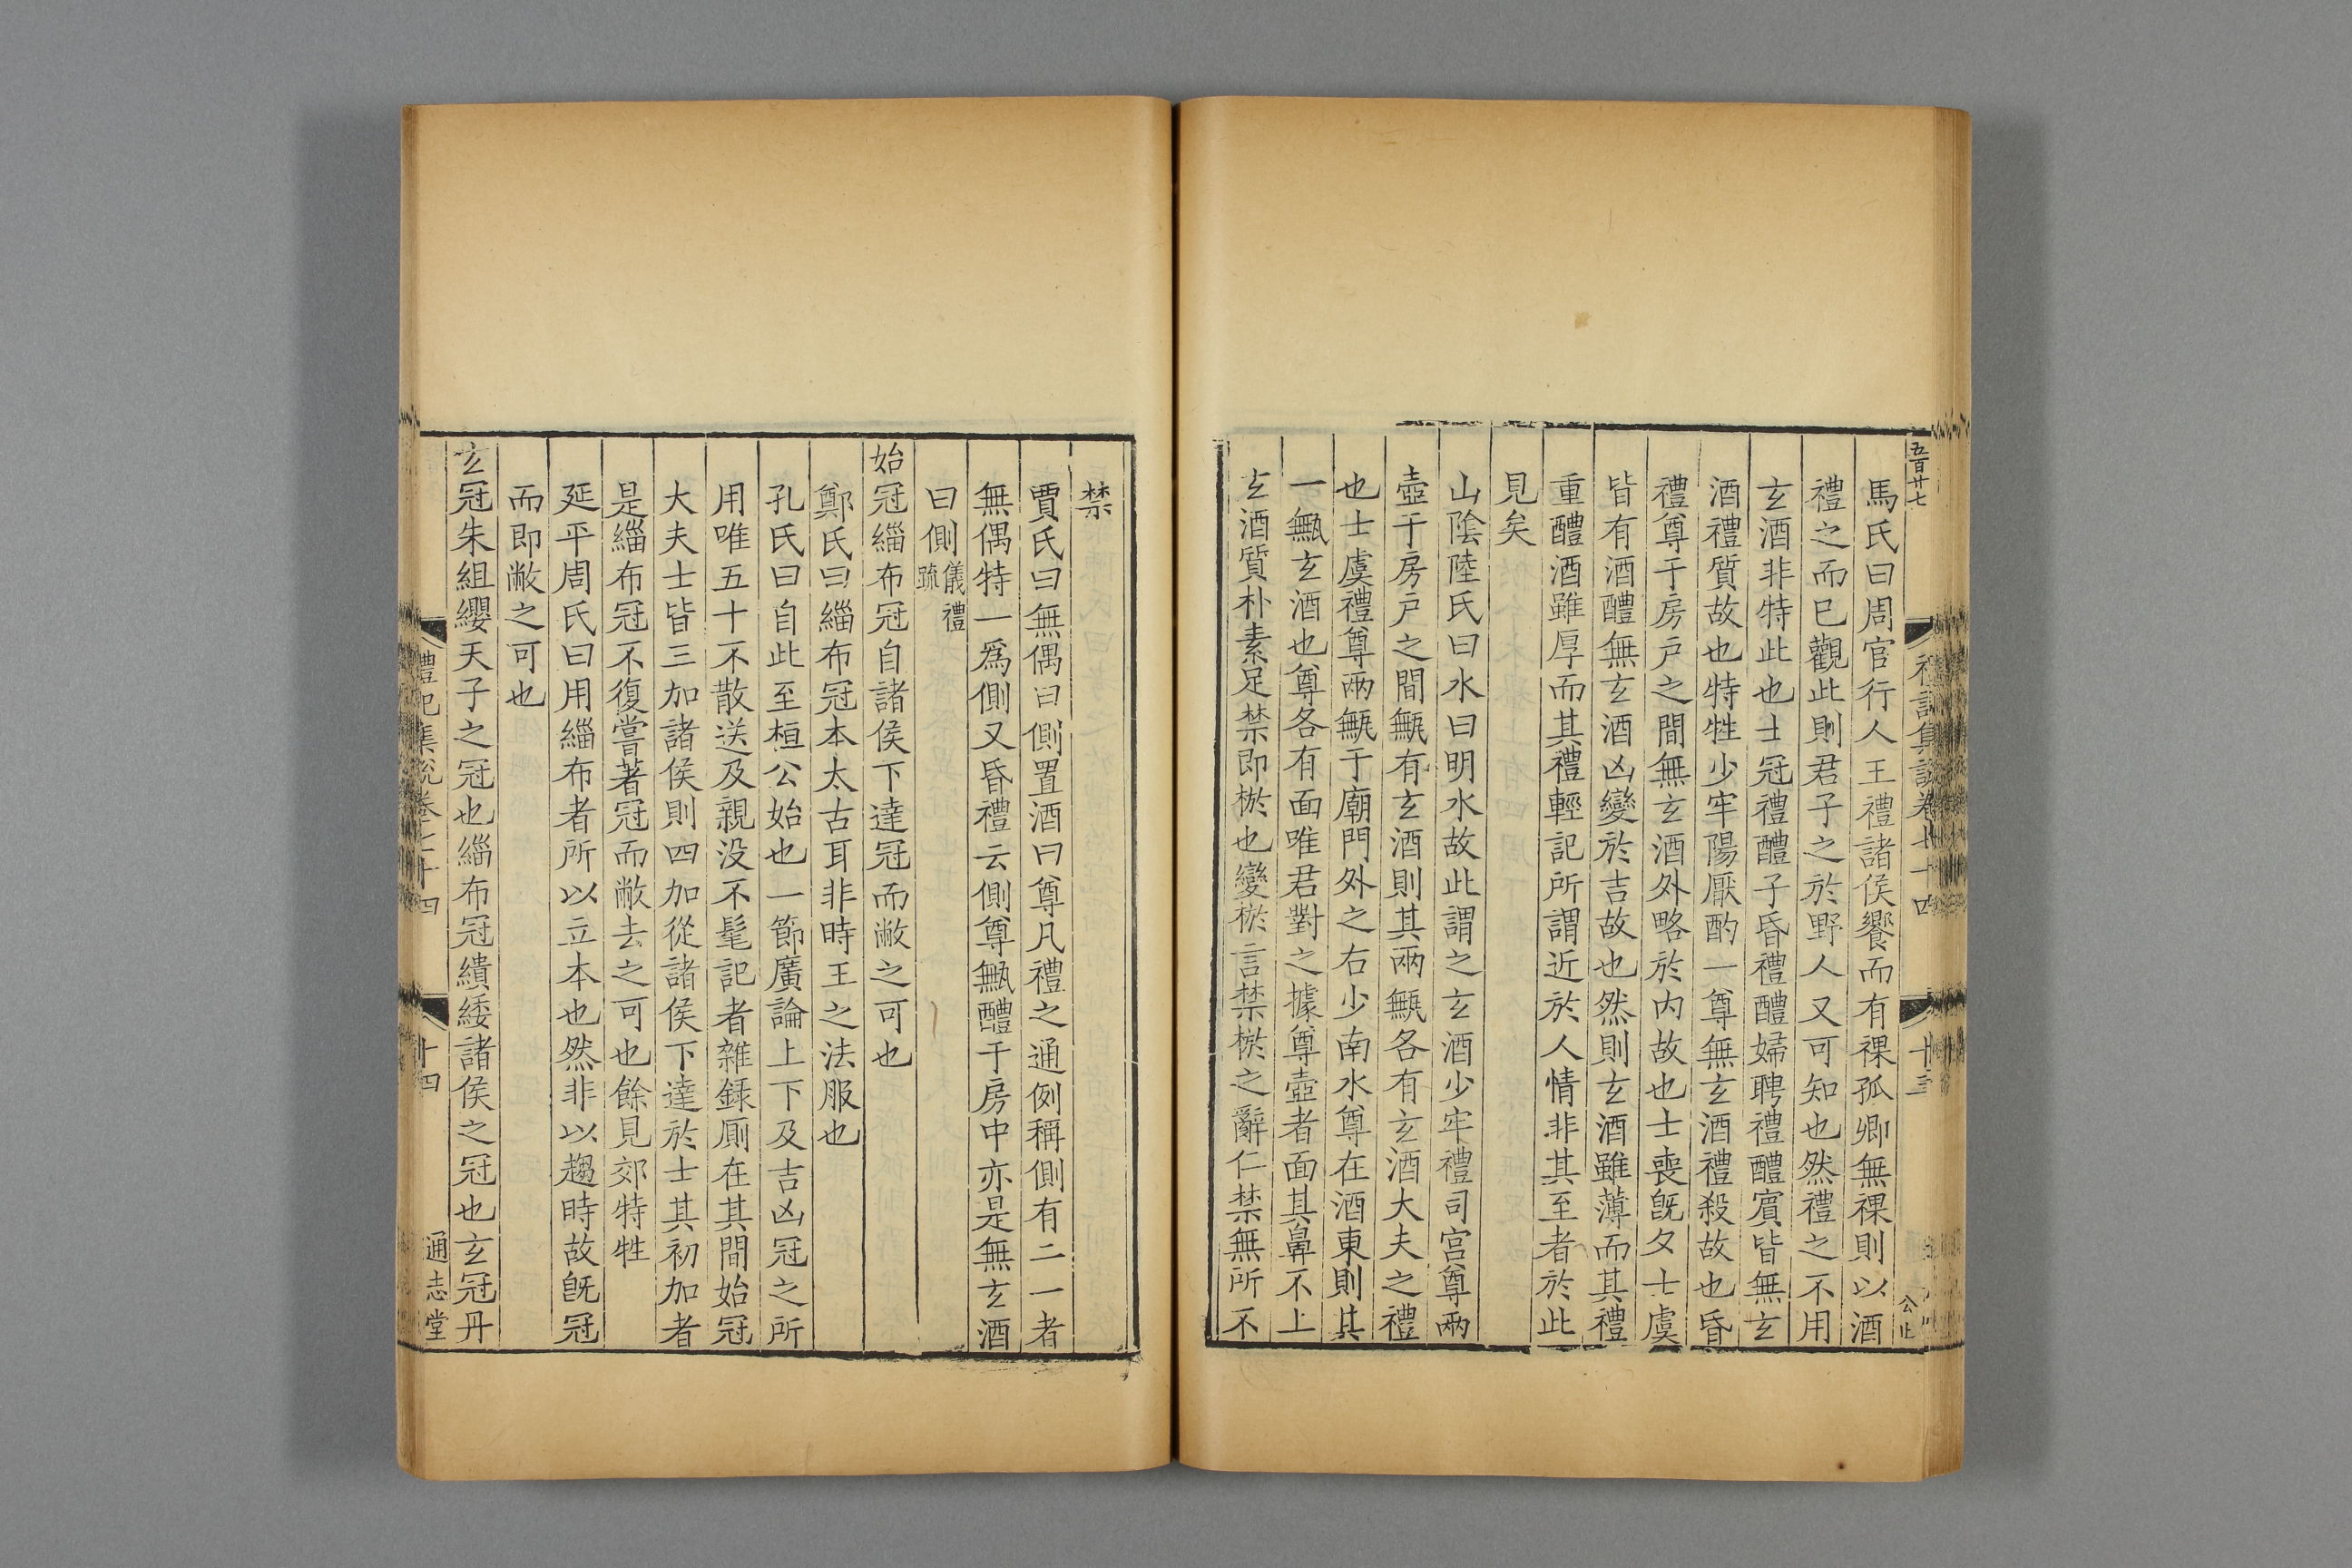 五百廿七
馬氏曰周官行人王禮諸侯饗而有祼孤卿無祼則以酒
禮之而已觀此則君子之於野人又可知也然禮之不用
玄酒非特此也士冠禮醴子昏禮醴婦聘禮醴賓皆無玄
酒禮質故也特牲少牢陽厭酌一尊無玄酒禮殺故也昏
禮尊于房戶之間無玄酒外略於内故也士喪旣夕士虞
皆有酒醴無玄酒凶變於吉故也然則玄酒雖薄而其禮
重醴酒雖厚而其禮輕記所謂近於人情非其至者於此
見矣
山陰陸氏曰水曰明水故此謂之玄酒少牢禮司宫尊兩
壺于房戶之間甒有玄酒則其兩甒各有玄酒大夫之禮
也士虞禮尊兩甒于廟門外之右少南水尊在酒東則其
一甒玄酒也尊各有面唯君對之據尊壺者面其鼻不上
玄酒質朴素足禁即棜也變棜言禁棜之辭仁禁無所不
禮記集說卷七十四
十三
公止
禁
賈氏曰無偶曰側置酒曰尊凡禮之通例稱側有二一者
無偶特一爲側又昏禮云側尊甒醴于房中亦是無玄酒
曰側儀禮疏
始冠緇布冠自諸侯下達冠而敝之可也
鄭氏曰緇布冠本太古耳非時王之法服也
孔氏曰自此至桓公始也一節廣論上下及吉凶冠之所
用唯五十不散送及親没不髦記者雜録厠在其間始冠
大夫士皆三加諸侯則四加從諸侯下達於士其初加者
是緇布冠不復嘗著冠而敝去之可也餘見郊特牲
延平周氏曰用緇布者所以立本也然非以趨時故旣冠
而即敝之可也
玄冠朱組纓天子之冠也緇布冠繢緌諸侯之冠也玄冠丹
禮記集說卷七十四
十四
通志堂